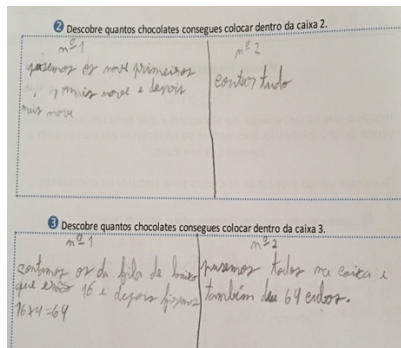 2 Descobre quantos chocolates consegues colocar dentro da caixa 2.
nº 1
pusemos os nove primeiros
, mais nove e depois
mais nove
nº 2
contar tudo
3 Descobre quantos chocolates consegues colocar dentro da caixa 3.
nº 1
contamos os da fila de baixo
que 16 e depois fizemos
16x4=64
nº 2
pusemos todos na caixa e
também deu 64 cubos.